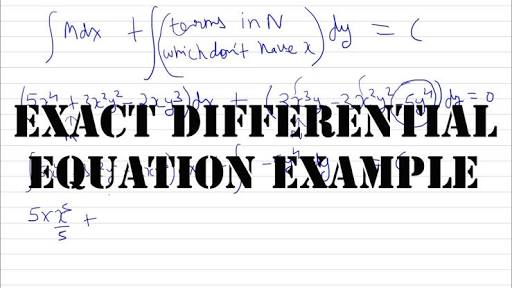 ∫ Mdx + ∫ (terms in N which don't have x) dy = C
(5x⁴ + 3x²y² - 2xy³)dx + (2x³y - 3x²y² - 5y⁴)dy = 0
EXACT DIFFERENTIAL
EQUATION EXAMPLE
5 x x⁵/5 +